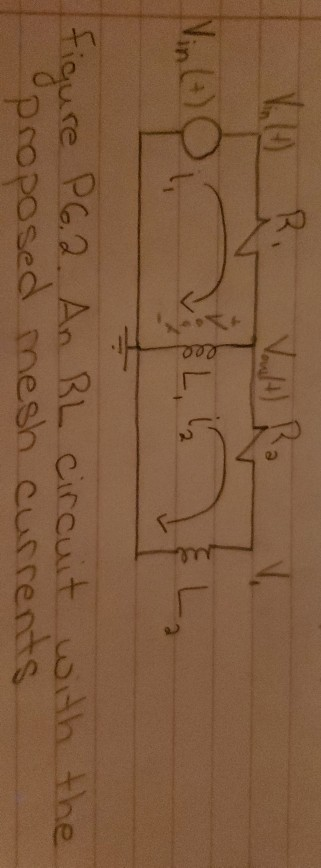 Vin(t) R1 Vout(t) R2 V1
Vin(t) i1 + V - L1 i2 L2
Figure P6.2. An RL circuit with the
proposed mesh currents